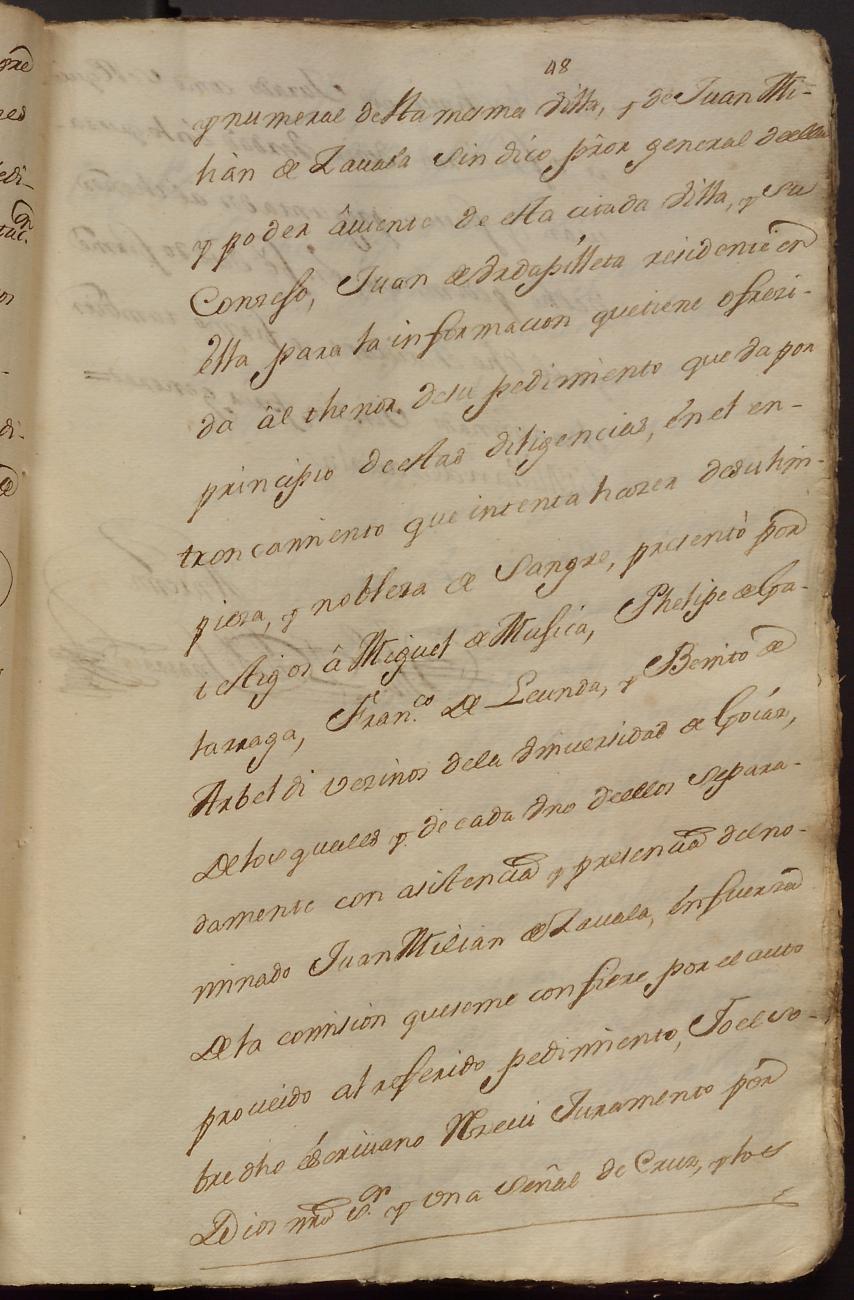 48
y numeral desta mesma Villa, y de Juan Mi-
lian de Zauala Sindico prôr general deella
y poder âuiente de esta citada Villa, y su
Conzeso, Juan de residente en
ella para la informacion que tiene ofrezi-
da âl thenor de su pedimiento que da por
principio de estas diligencias, én el en-
troncamiento que intenta hazer de su lim-
pieza, y nobleza de Sangre, presentò por
testigos â Miguel de Musica, Phelipe de Ga-
larraga, Fran.co de Lecunda, y Benito de
Arbeldi vezinos dela Vniuersidad de Goiáz,
De los quales y de cada Vno deellos separa-
damente con asistencia y presencia del no-
minado Juan Milian de Zauala, én fuerza
De la comision que se me confiere por el auto
proueido al referido pedimiento, Yo el so-
bre dho éscriuano Rreciui Juramento por
Dios nrô S.r y vna Señal de Cruz, y los